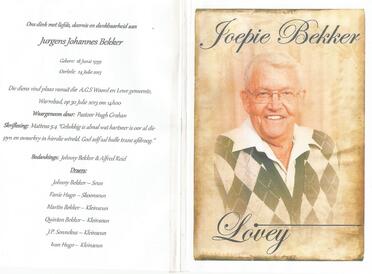 Ons dink met liefde, deernis en dankbaarheid aan
Jurgens Johannes Bekker
Gebore: 18 Junie
Oorlede: 24 Julie 2013
Die diens vind plaas vanuit die A.G.S Woord en Lewe gemeente,
Warmbad, op 30 Julie 2013 om 14h00
Waargeneem deur: Pastoor Hugh Graham
Skriflesing: Matteus 5:4 "Gelukkig is almal wat hartseer is oor al die
pyn en onreg in hierdie wêreld. God self sal hulle trane afdroog."
Bedankings: Johnny Bekker & Alfred Reid
Draers:
Johnny Bekker – Seun
Fanie Hugo – Skoonseun
Martin Bekker – Kleinseun
Quinton Bekker – Kleinseun
J.P. Senekal – Kleinseun
Ivan Hugo – Kleinseun
Joepie Bekker
Lovey